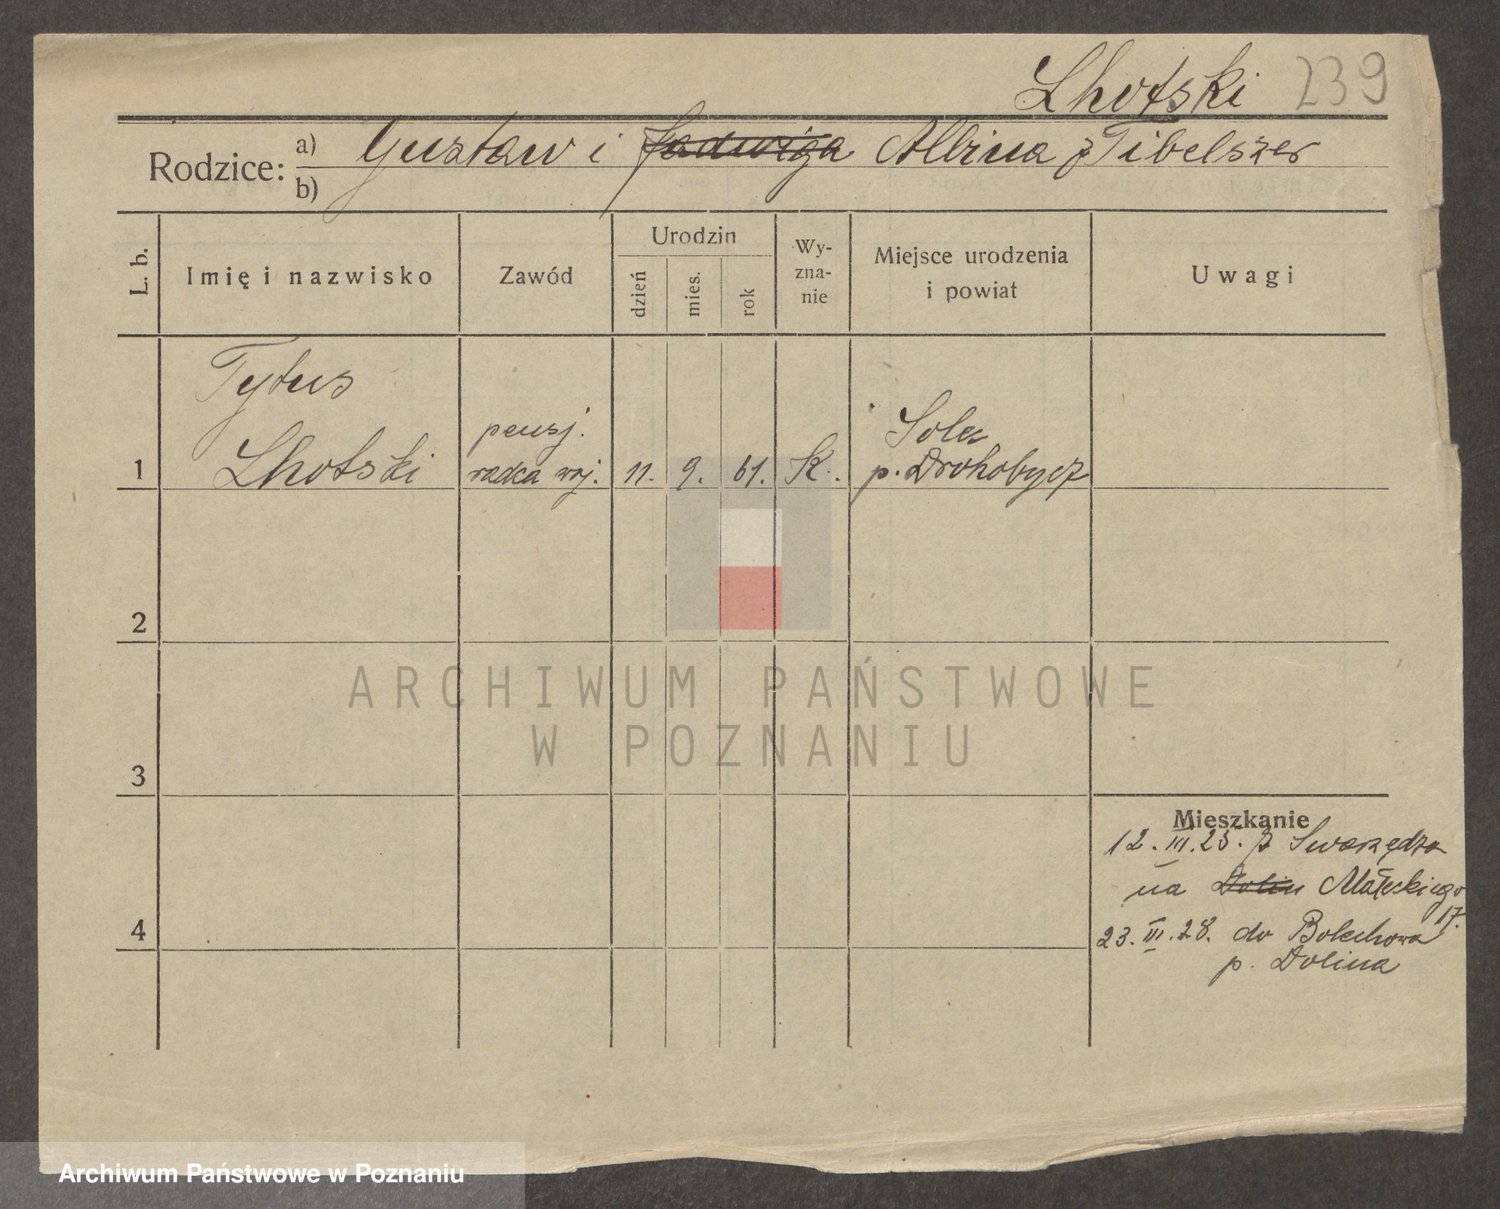 Lhotski 239
Rodzice: a) Gustaw i Jadwiga Albina z Tibelszer
b)
L. b.
Imię i nazwisko
Zawód
Urodzin
dzień
mies.
rok
Wy-
zna-
nie
Miejsce urodzenia
i powiat
Uwagi
1
Tytus
Lhotski
pensj.
radca woj.
11.
9.
61.
K.
Solec
p. Drohobycz
2
3
4
Mieszkanie
12.III.25. z Swarzędza
na Dolin Małeckiego
17.
23.III.28. do Bolechowa
p. Dolina
ARCHIWUM PAŃSTWOWE
W POZNANIU
Archiwum Państwowe w Poznaniu